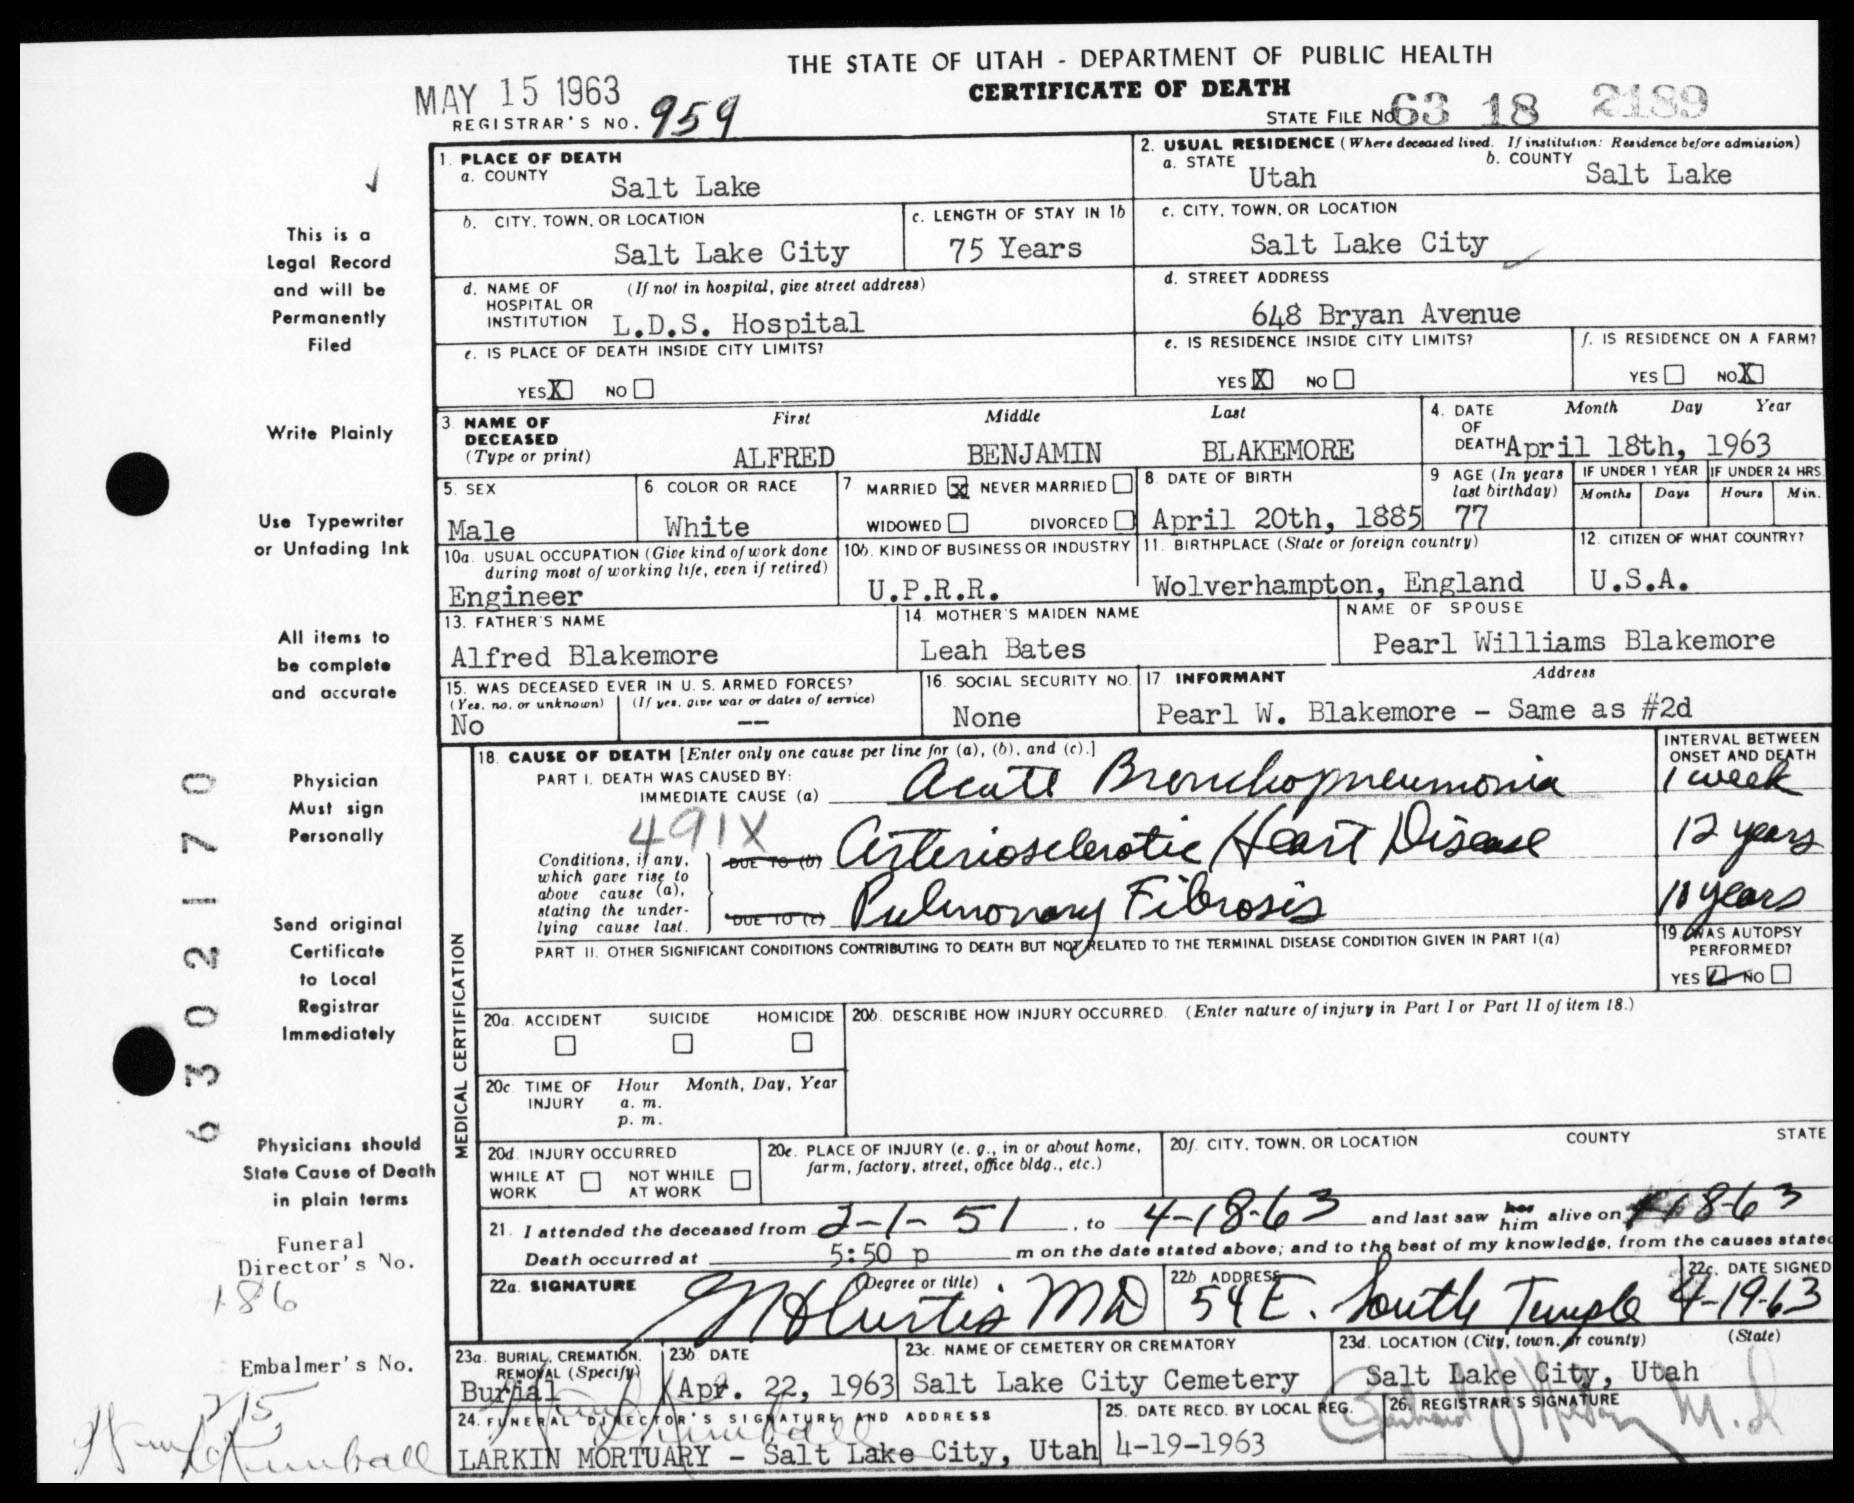 THE STATE OF UTAH - DEPARTMENT OF PUBLIC HEALTH
CERTIFICATE OF DEATH
MAY 15 1963
REGISTRAR'S NO. 959
STATE FILE NO. 63 18 2189
This is a
Legal Record
and will be
Permanently
Filed
Write Plainly
Use Typewriter
or Unfading Ink
All items to
be complete
and accurate
Physician
Must sign
Personally
Send original
Certificate
to Local
Registrar
Immediately
Physicians should
State Cause of Death
in plain terms
Funeral
Director's No.
186
Embalmer's No.
215
Kimball
6302170
1. PLACE OF DEATH
a. COUNTY
Salt Lake
b. CITY, TOWN, OR LOCATION
Salt Lake City
c. LENGTH OF STAY IN 1b
75 Years
d. NAME OF HOSPITAL OR INSTITUTION (If not in hospital, give street address)
L.D.S. Hospital
e. IS PLACE OF DEATH INSIDE CITY LIMITS?
YES X NO
2. USUAL RESIDENCE (Where deceased lived. If institution: Residence before admission)
a. STATE
Utah
b. COUNTY
Salt Lake
c. CITY, TOWN, OR LOCATION
Salt Lake City
d. STREET ADDRESS
648 Bryan Avenue
e. IS RESIDENCE INSIDE CITY LIMITS?
YES X NO
f. IS RESIDENCE ON A FARM?
YES NO X
3. NAME OF DECEASED (Type or print)
First Middle Last
ALFRED BENJAMIN BLAKEMORE
4. DATE OF DEATH Month Day Year
April 18th, 1963
5. SEX
Male
6 COLOR OR RACE
White
7 MARRIED X NEVER MARRIED
WIDOWED DIVORCED
8. DATE OF BIRTH
April 20th, 1885
9 AGE (In years last birthday)
77
IF UNDER 1 YEAR
Months Days
IF UNDER 24 HRS.
Hours Min.
10a. USUAL OCCUPATION (Give kind of work done during most of working life, even if retired)
Engineer
10b. KIND OF BUSINESS OR INDUSTRY
U.P.R.R.
11. BIRTHPLACE (State or foreign country)
Wolverhampton, England
12. CITIZEN OF WHAT COUNTRY?
U.S.A.
13. FATHER'S NAME
Alfred Blakemore
14. MOTHER'S MAIDEN NAME
Leah Bates
NAME OF SPOUSE
Pearl Williams Blakemore
15. WAS DECEASED EVER IN U. S. ARMED FORCES?
(Yes, no, or unknown) (If yes, give war or dates of service)
No --
16. SOCIAL SECURITY NO.
None
17 INFORMANT Address
Pearl W. Blakemore - Same as #2d
MEDICAL CERTIFICATION
18. CAUSE OF DEATH [Enter only one cause per line for (a), (b), and (c).]
INTERVAL BETWEEN ONSET AND DEATH
PART I. DEATH WAS CAUSED BY:
IMMEDIATE CAUSE (a) Acute Bronchopneumonia 1 week
491X
Conditions, if any, which gave rise to above cause (a), stating the underlying cause last.
DUE TO (b) Arteriosclerotic Heart Disease 12 years
DUE TO (c) Pulmonary Fibrosis 11 years
PART II. OTHER SIGNIFICANT CONDITIONS CONTRIBUTING TO DEATH BUT NOT RELATED TO THE TERMINAL DISEASE CONDITION GIVEN IN PART I(a)
19 WAS AUTOPSY PERFORMED?
YES NO
20a. ACCIDENT SUICIDE HOMICIDE
20b. DESCRIBE HOW INJURY OCCURRED. (Enter nature of injury in Part I or Part II of item 18.)
20c. TIME OF INJURY Hour Month, Day, Year
a. m.
p. m.
20d. INJURY OCCURRED
WHILE AT WORK NOT WHILE AT WORK
20e. PLACE OF INJURY (e. g., in or about home, farm, factory, street, office bldg., etc.)
20f. CITY, TOWN, OR LOCATION COUNTY STATE
21. I attended the deceased from 2-1-51, to 4-18-63 and last saw her him alive on 4-18-63
Death occurred at 5:50 p m on the date stated above; and to the best of my knowledge, from the causes stated
22a. SIGNATURE (Degree or title)
Curtis MD
22b. ADDRESS
54 E. South Temple
22c. DATE SIGNED
4-19-63
23a. BURIAL, CREMATION, REMOVAL (Specify)
Burial
23b. DATE
Apr. 22, 1963
23c. NAME OF CEMETERY OR CREMATORY
Salt Lake City Cemetery
23d. LOCATION (City, town, or county) (State)
Salt Lake City, Utah
24. FUNERAL DIRECTOR'S SIGNATURE AND ADDRESS
LARKIN MORTUARY - Salt Lake City, Utah
25. DATE RECD. BY LOCAL REG.
4-19-1963
26. REGISTRAR'S SIGNATURE
M.D